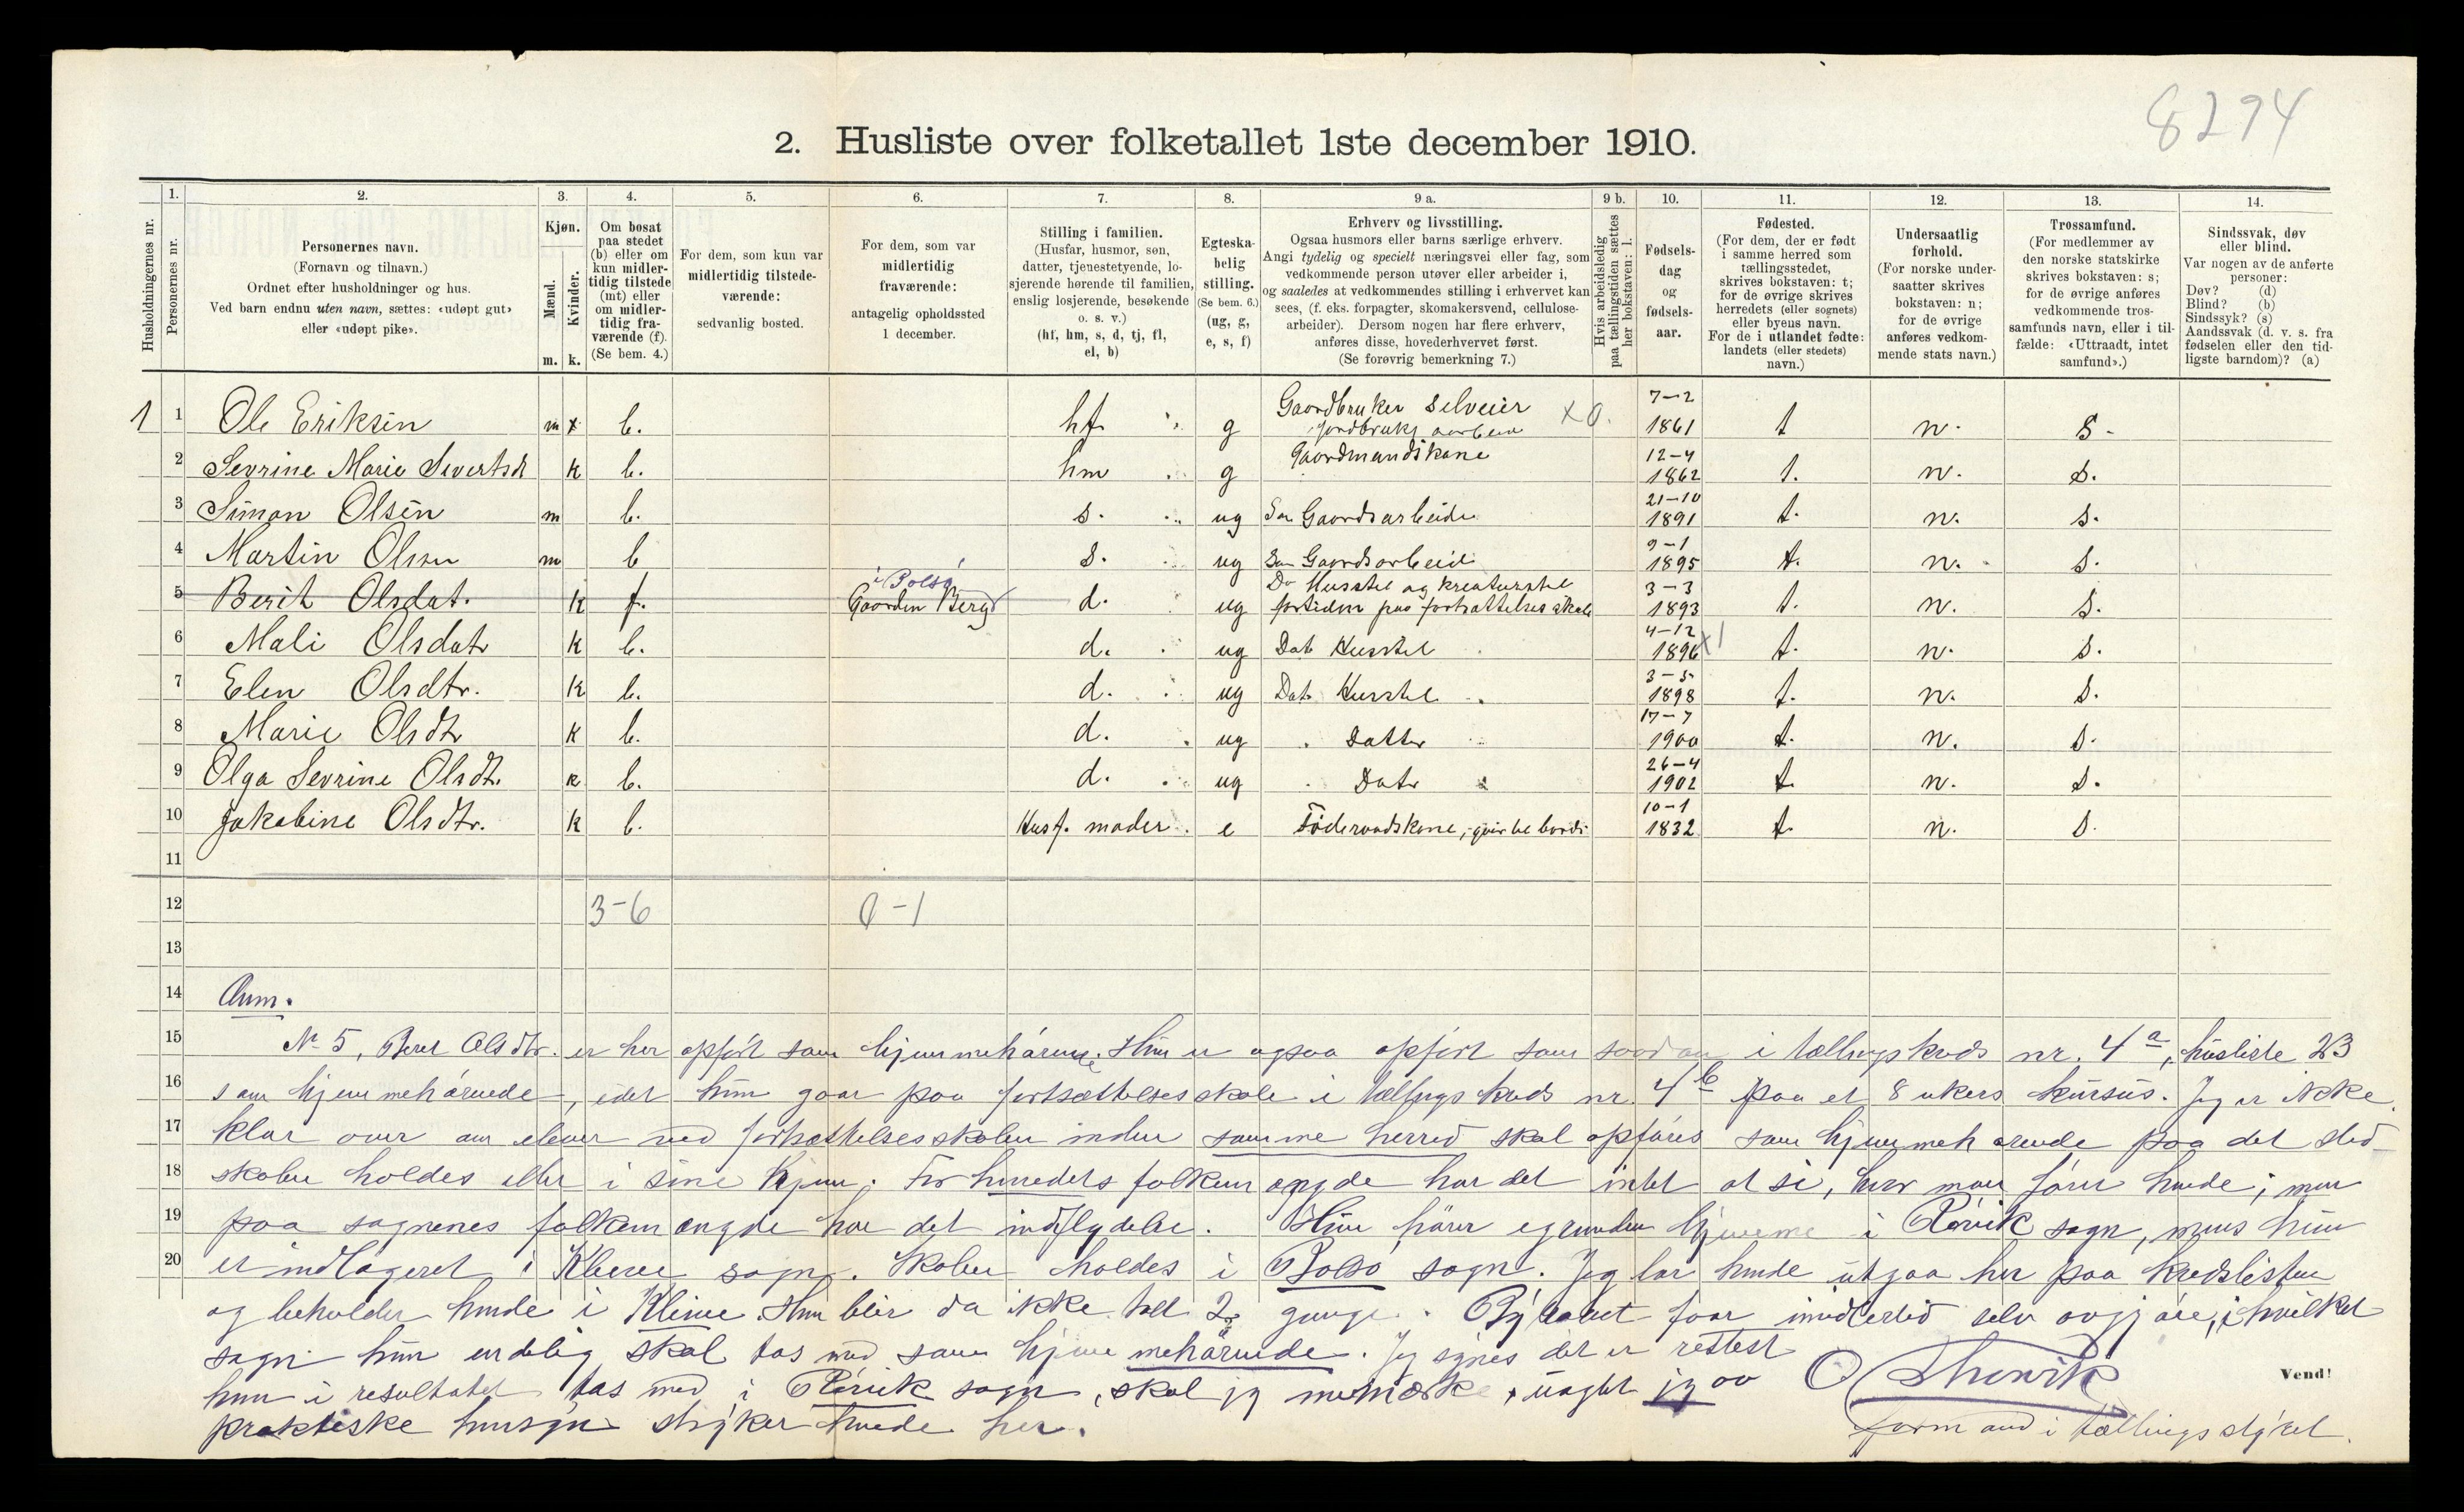 8294
2. Husliste over folketallet 1ste december 1910.
Husholdningernes nr.
1. Personernes nr.
2. Personernes navn.
(Fornavn og tilnavn.)
Ordnet efter husholdninger og hus.
Ved barn endnu uten navn, sættes: «udøpt gut»
eller «udøpt pike».
3. Kjøn.
Mænd. Kvinder.
m. k.
4. Om bosat
paa stedet
(b) eller om
kun midler-
tidig tilstede
(mt) eller
om midler-
tidig fra-
værende (f).
(Se bem. 4.)
5. For dem, som kun var
midlertidig tilstede-
værende:
sedvanlig bosted.
6. For dem, som var
midlertidig
fraværende:
antagelig opholdssted
1 december.
7. Stilling i familien.
(Husfar, husmor, søn,
datter, tjenestetyende, lo-
sjerende hørende til familien,
enslig losjerende, besøkende
o. s. v.)
(hf, hm, s, d, tj, fl,
el, b)
8. Egteska-
belig
stilling.
(Se bem. 6.)
(ug, g,
e, s, f)
9 a. Erhverv og livsstilling.
Ogsaa husmors eller barns særlige erhverv.
Angi tydelig og specielt næringsvei eller fag, som
vedkommende person utøver eller arbeider i,
og saaledes at vedkommendes stilling i erhvervet kan
sees, (f. eks. forpagter, skomakersvend, cellulose-
arbeider). Dersom nogen har flere erhverv,
anføres disse, hovederhvervet først.
(Se forøvrig bemerkning 7.)
9 b. Hvis arbeidsledig
paa tællingstiden sættes
her bokstaven: l.
10. Fødsels-
dag
og
fødsels-
aar.
11. Fødested.
(For dem, der er født
i samme herred som
tællingsstedet,
skrives bokstaven: t;
for de øvrige skrives
herredets (eller sognets)
eller byens navn.
For de i utlandet fødte:
landets (eller stedets)
navn.)
12. Undersaatlig
forhold.
(For norske under-
saatter skrives
bokstaven: n;
for de øvrige
anføres vedkom-
mende stats navn.)
13. Trossamfund.
(For medlemmer av
den norske statskirke
skrives bokstaven: s;
for de øvrige anføres
vedkommende tros-
samfunds navn, eller i til-
fælde: «Uttraadt, intet
samfund».)
14. Sindssvak, døv
eller blind.
Var nogen av de anførte
personer:
Døv? (d)
Blind? (b)
Sindssyk? (s)
Aandssvak (d. v. s. fra
fødselen eller den tid-
ligste barndom)? (a)
1 1 Ole Eriksen m x b. hf. g Gaardbruker selveier jordbruks arbeide x 0. 7-2 1861 t n. s.
2 Sevrine Marie Sivertsdt k b. hm g Gaardmandskone 12-4 1862 t. n. s.
3 Simon Olsen m b. s. ug Søn Gaardsarbeide 21-10 1891 t. n. s.
4 Martin Olsen m b s. ug Søn Gaardsarbeide 9-1 1895 t. n. s.
5 Berit Olsdat. k f. i Bolsø Gaarden Berg d. ug Do Husstel og kreaturstel fortiden paa fortsættelsesskole 3-3 1893 t. n. s.
6 Mali Olsdatr k b. d. ug Datr Husstel 4-12 1896 x1 t. n. s.
7 Elen Olsdtr. k b. d. ug Datr Husstel 3-5 1898 t. n. s.
8 Marie Olsdtr k b. d. ug Datter 17-7 1900 t. n. s.
9 Olga Sevrine Olsdtr. k b. d. ug Datr 26-4 1902 t. n. s.
10 Jakobine Olsdtr. k b. Husf. moder e Føderaadskone, gaardbr. 10-1 1832 t. n. s.
11
12 3-6 0-1
13
14 Anm.
15 No 5, Beret Olsdtr. er her opført som hjemmehørende. Hun er ogsaa opført som saadan i tællingskreds nr. 4a, husliste 23
16 som hjemmehørende, idet hun gaar paa fortsættelsesskole i tællingskreds nr. 4b paa et 8 ukers kursus. Jeg er ikke
17 klar over om elever ved fortsættelsesskolen inden samme herred skal opføres som hjemmehørende paa det sted
18 skolen holdes eller i sine hjem. For herredets folkemængde har det intet at si, hvor man fører hende; men
19 paa sognenes folkemængde har det indflydelse. Hun hører egentlig hjemme i Rørvik sogn, mens hun
20 er indlogeret i Kleive sogn. Skolen holdes i Bolsø sogn. Jeg lar hende utgaa her paa kredslisten
og beholder hende i Kleive. Hun blir da ikke talt 2 gange. Byraaet faar imidlertid selv avgjøre, i hvilket
sogn hun endelig skal tas med som hjemmehørende. Jeg synes det er rettest
hun i resultatet tas med i Rørvik sogn, skal jeg bemerke, uagtet jeg av
praktiske hensyn stryker hende her.
formand i tællingsstyret.
Vend!